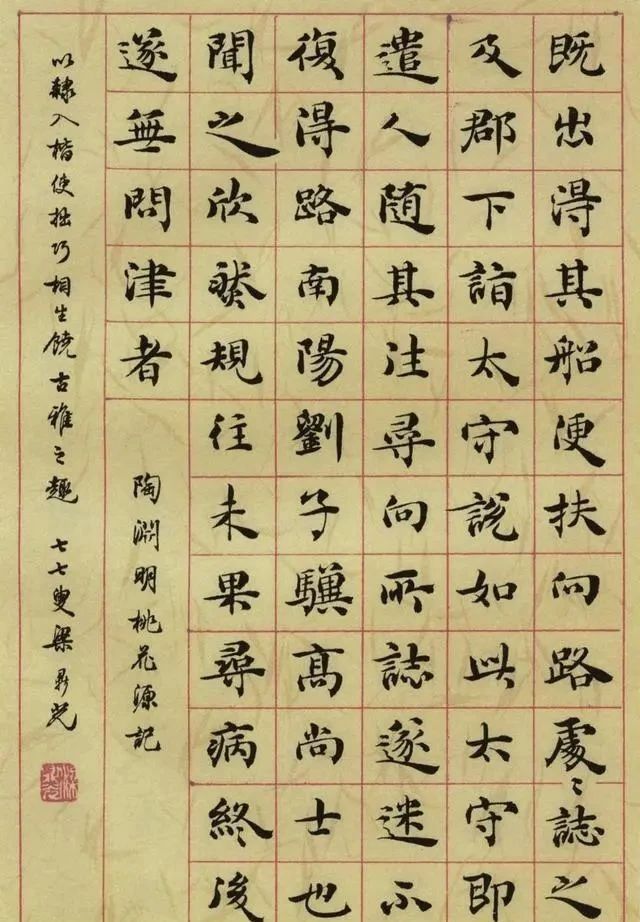 既出得其船便扶向路處〻誌之
及郡下詣太守說如此太守即
遣人隨其往尋向所誌遂迷不
復得路南陽劉子驥高尚士也
聞之欣然規往未果尋病終後
遂無問津者
陶淵明桃花源記
以隸入楷使拙巧相生饒古雅之趣 七七叟梁鼎光